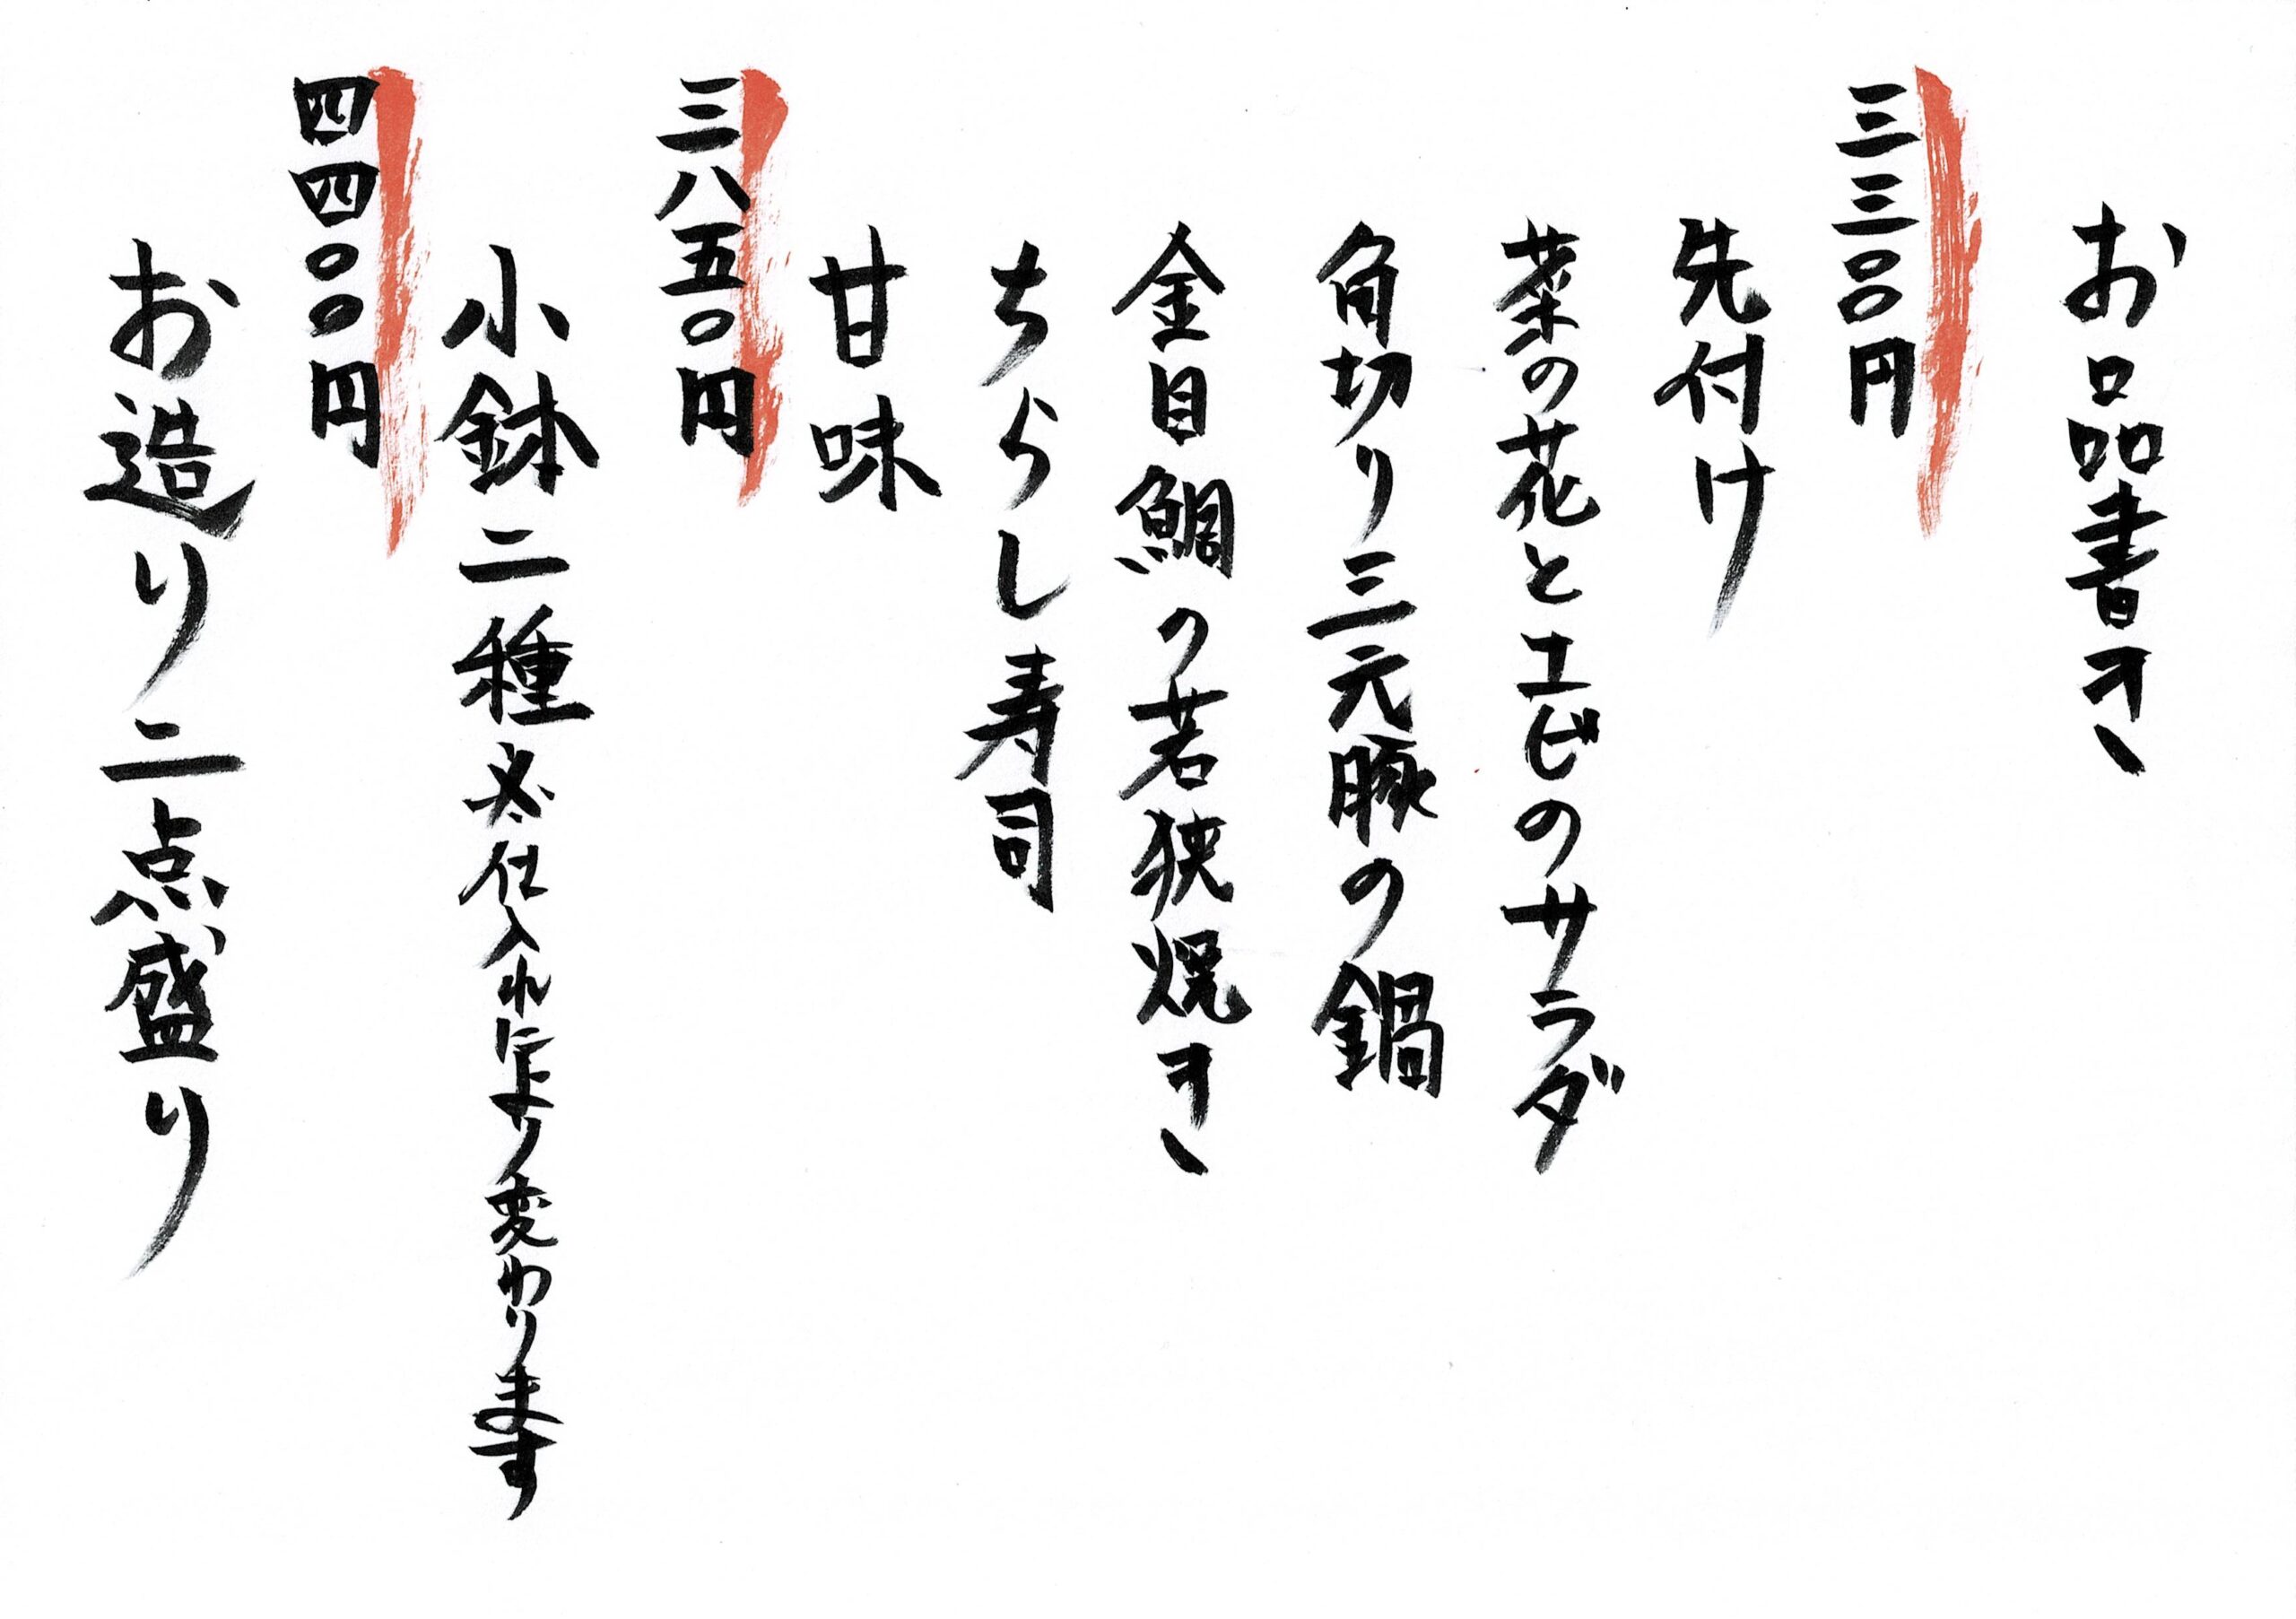 お品書き
三三〇〇円
先付け
菜の花とエビのサラダ
角切り三元豚の鍋
金目鯛の若狭焼き
ちらし寿司
甘味
三八五〇円
小鉢二種 ※仕入れにより変わります
四四〇〇円
お造り二点盛り